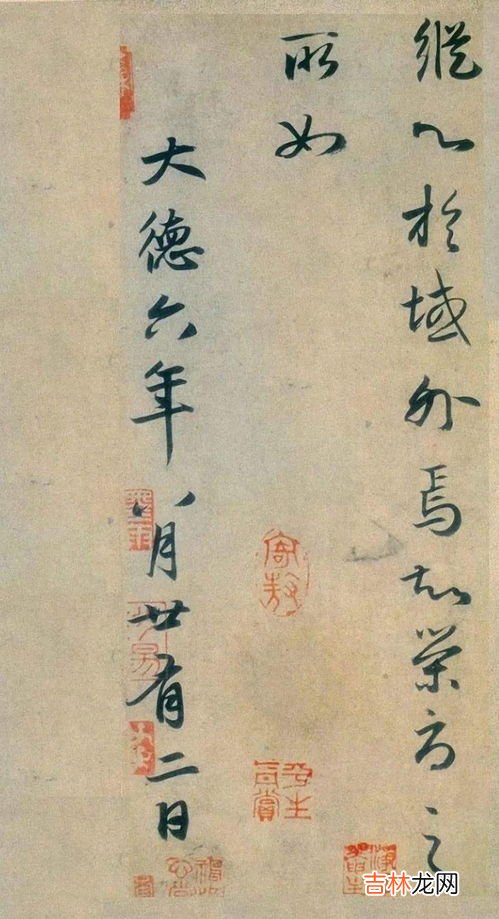 縱心於域外焉知榮辱之
所如
大德六年八月廿有二日
寄敖
吉林龙网